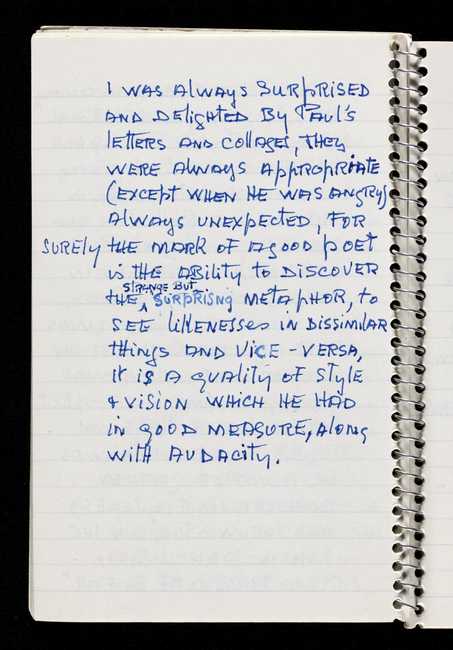 I WAS ALWAYS SURPRISED
AND DELIGHTED BY PAUL'S
LETTERS AND COLLAGES, THEY
WERE ALWAYS APPROPRIATE
(EXCEPT WHEN HE WAS ANGRY)
ALWAYS UNEXPECTED, FOR
SURELY THE MARK OF A GOOD POET
is THE ABILITY TO DISCOVER
STRANGE BUT
THE SURPRISNG METAPHOR, TO
SEE LIKENESSES IN DISSIMILAR
THINGS AND VICE-VERSA,
IT IS A QUALITY OF STYLE
& VISION WHICH HE HAD
IN GOOD MEASURE, ALONG
WITH AUDACITY.